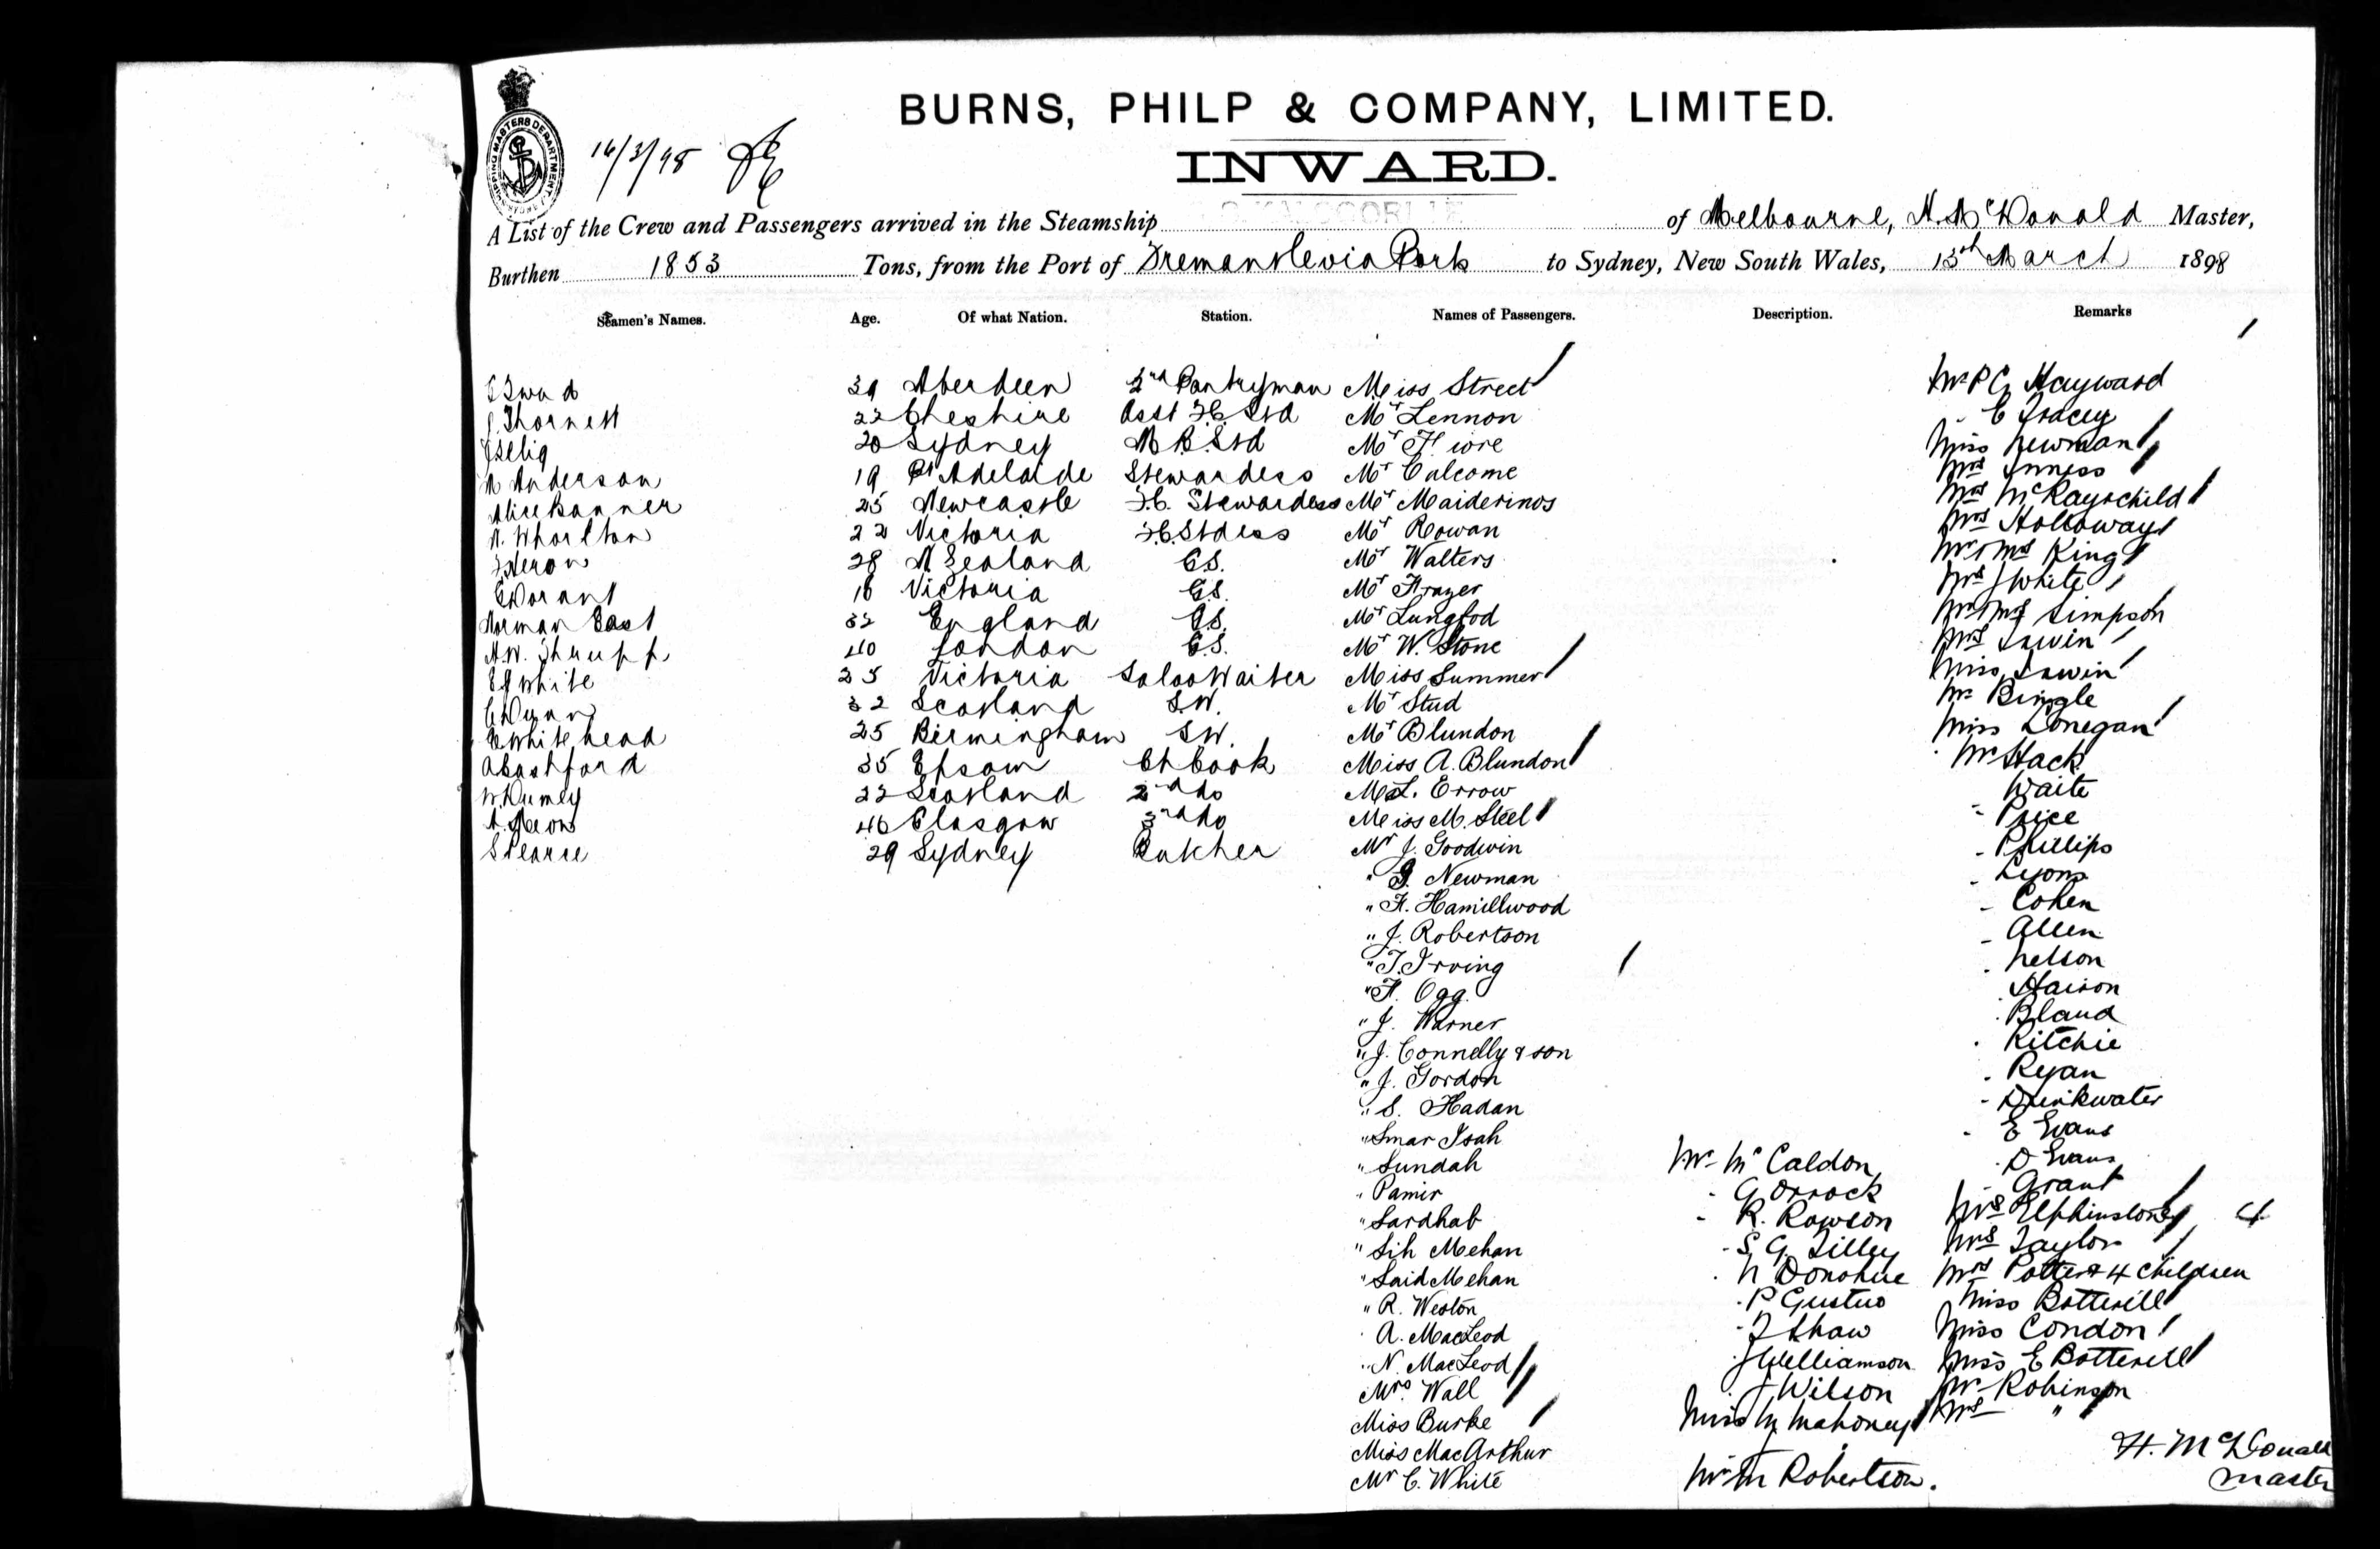 BURNS, PHILP & COMPANY, LIMITED.
INWARD.
SHIPPING MASTERS DEPARTMENT
16/3/98
A List of the Crew and Passengers arrived in the Steamship KALGOORLIE of Melbourne, H. McDonald Master,
Burthen 1853 Tons, from the Port of Fremantle via Ports to Sydney, New South Wales, 15th March 1898
Seamen's Names. Age. Of what Nation. Station. Names of Passengers. Description. Remarks
39 Aberdeen 2nd Pantryman Miss Street Mr P G Hayward
J. Thornett 22 Cheshire Asst F.C. Std Mr Lennon " C Tracey
J Selig 20 Sydney M R Std Mr Fiore Miss Newman
M Anderson 19 Pt Adelaide Stewardess Mr Calcome Mrs Inness
Alice Banner 25 Newcastle F.C. Stewardess Mr Maiderinos Mrs McKay & child
N. Whorlton 22 Victoria F.C. Stdess Mr Rowan Mrs Holloway
Heron 28 N Zealand G.S. Mr Walters Mr & Mrs King
E Dorant 18 Victoria G.S. Mr Frazer Mrs J White
Norman East 32 England G.S. Mr Lungfod Mr & Mrs Simpson
A.W. 40 London G.S. Mr W. Stone Mrs Irwin
E A White 25 Victoria Saloo Waiter Miss Summer Miss Irwin
32 Scotland S.W. Mr Stud Mr Bingle
E Whitehead 25 Birmingham S.W. Mr Blundon Miss Lonegan
A Bashford 35 Epsom Ch Cook Miss A. Blundon Mr Stack
W. 22 Scotland 2nd do M L. Errow Waite
A. 46 Glasgow 3rd do Miss M. Steel " Price
S Pearce 29 Sydney Butcher Mr J. Goodwin " Phillips
" G. Newman " Lyons
" F. Hamillwood " Cohen
" J. Robertson " Allen
" T. Irving " Nelson
" F. Ogg. " Hairon
" J. Warner " Bland
" J. Connelly & son " Ritchie
" J. Gordon " Ryan
" S. Hadan " Drinkwater
" Smar Isah " E Evans
" Sundah Mr McCaldon " D Evans
" Pamir " G Orrock " Grant
" Sardhab " R. Rowson Mrs Elphinstone 4
" Sih Mehan " S. G. Tilley Mrs Taylor
" Said Mehan " N Donohue Mrs Potter & 4 Children
" R. Weston " P Gustus Miss Botterill
" A. MacLeod " J Shaw Miss Condon
" N. MacLeod " J Williamson Miss E Botterell
Mrs. Wall " J Wilson Mr Robinson
Miss Burke Miss M Mahoney Mrs "
Miss MacArthur
Mr C. White Mr M Robertson.
H. McDonald
Master